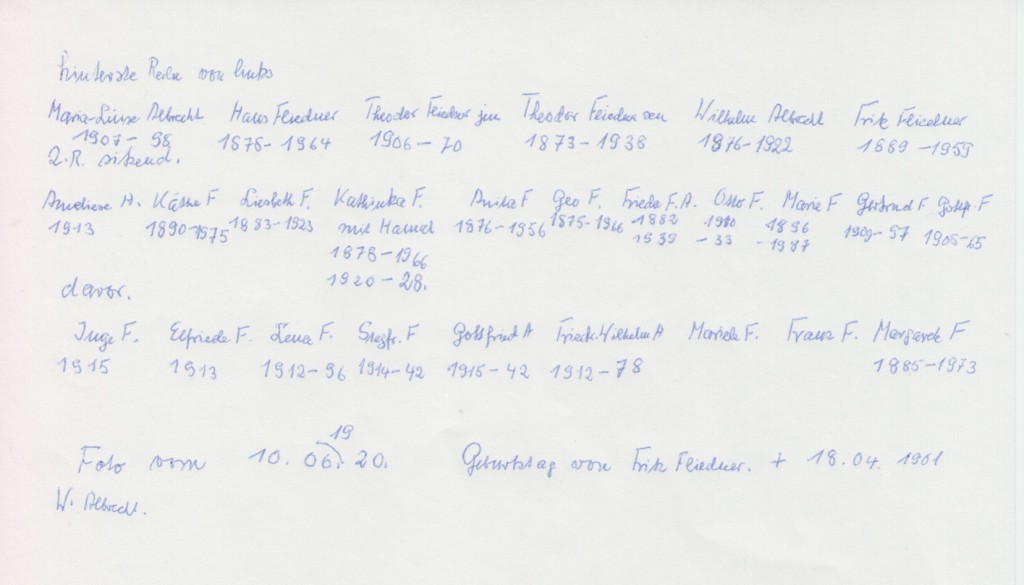 hinterste Reihe von links
Maria-Luise Albrecht Hans Fliedner Theodor Fliedner jun Theodor Fliedner sen Wilhelm Albrecht Fritz Fliedner
1907-98 1878-1964 1906-70 1873-1938 1876-1922 1889-1959
2.R. sitzend.
Anneliese A. Käthe F Liesbeth F. Kathinka F. Anita F Geo F. Frieda F.A. Otto F. Marie F Gertrud F Gottfr. F
1913 1890-1975 1883-1923 mit Harald 1876-1956 1875-1966 1882 1896 1909-97 1905-65
1878-1966 1939 -33 -1987
1920-28.
davor.
Inge F. Elfriede F. Lena F. Siegfr. F Gottfried A Friedr. Wilhelm A Mariele F. Franz F. Margarete F
1915 1913 1912-96 1914-42 1915-42 1912-78 1885-1973
19
Foto vom 10. 06. 20. Geburtstag von Fritz Fliedner. + 18.04. 1901
W. Albrecht.